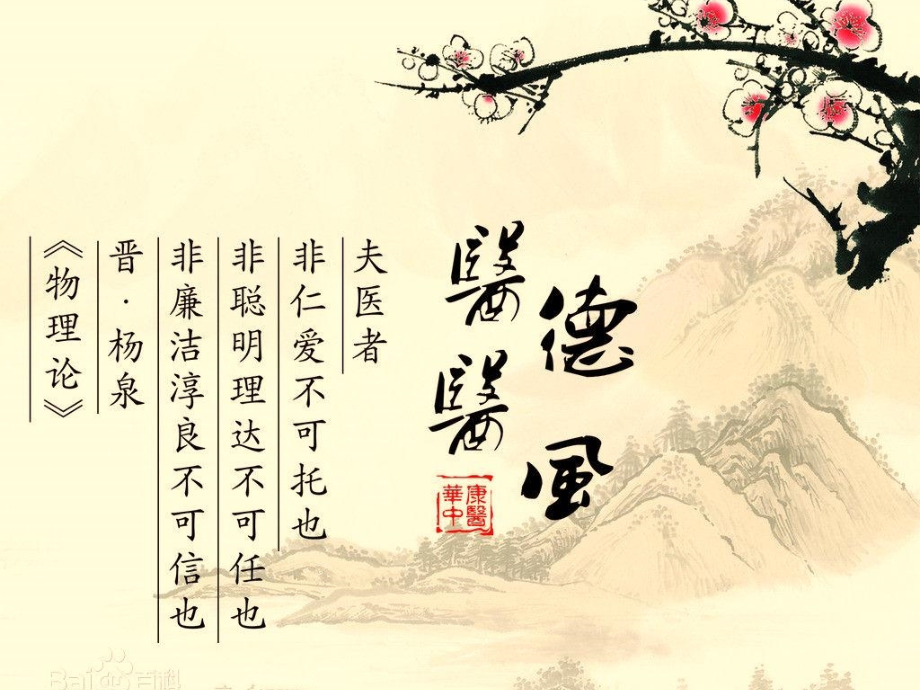 醫德
醫風
康醫
華中
夫医者
非仁爱不可托也
非聪明理达不可任也
非廉洁淳良不可信也
晋·杨泉
《物理论》
Bai 百科